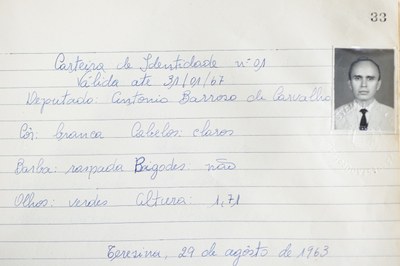 33
Carteira de Identidade nº 01
Válida até 31/01/67
Deputado: Antonio Barroso de Carvalho
Côr: branca Cabelos: claros
Barba: raspada Bigodes: não
Olhos: verdes Altura: 1,71
Teresina, 29 de agôsto de 1963